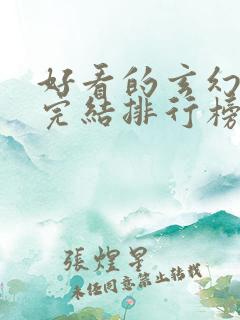 好看的玄幻
完結排行榜
張煌星
未经同意禁止转载